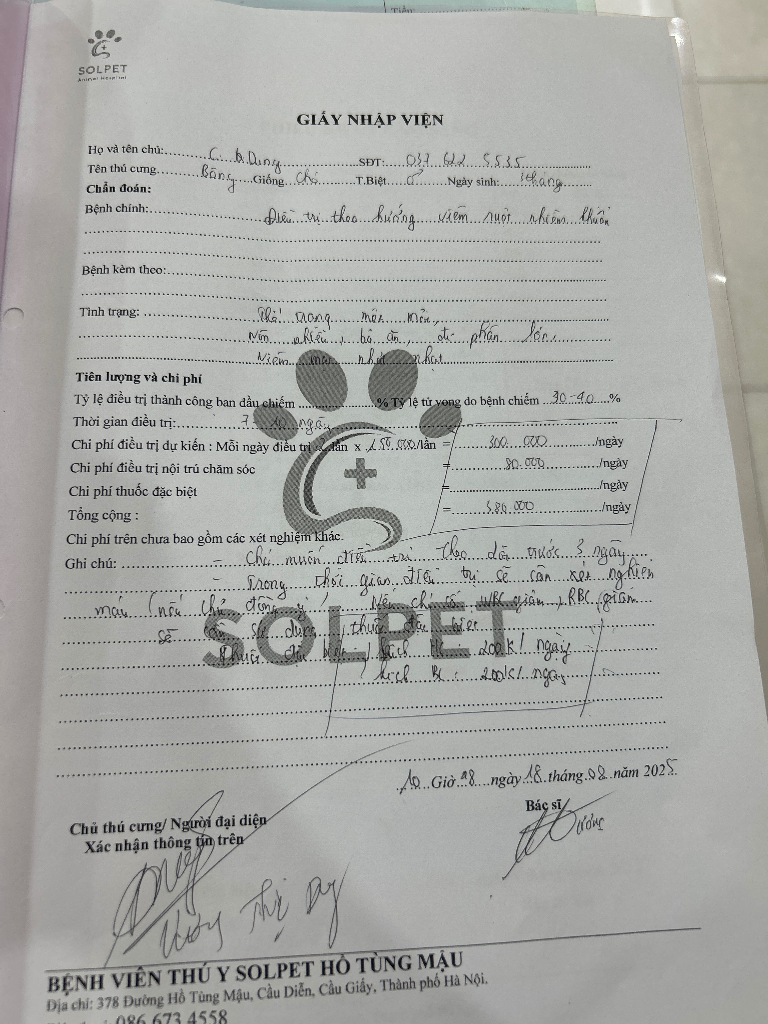 Tiền
SOLPET
Animal Hospital
GIẤY NHẬP VIỆN
Họ và tên chủ: C. Dung SĐT: 037 622 5535
Tên thú cưng Bông Giống Chó T.Biệt ♂ Ngày sinh: 3 tháng
Chẩn đoán:
Bệnh chính: Điều trị theo hướng viêm ruột nhiễm khuẩn
Bệnh kèm theo:
Tình trạng: Thể trạng mệt mỏi,
Nôn nhiều, bỏ ăn, đi phân lỏng,
Niêm mạc nhợt nhạt
Tiên lượng và chi phí
Tỷ lệ điều trị thành công ban đầu chiếm % Tỷ lệ tử vong do bệnh chiếm 30-40 %
Thời gian điều trị: 7 - 10 ngày
Chi phí điều trị dự kiến : Mỗi ngày điều trị 2 lần x 150.000/lần = 300.000 /ngày
Chi phí điều trị nội trú chăm sóc = 80.000 /ngày
Chi phí thuốc đặc biệt = /ngày
Tổng cộng : = 380.000 /ngày
Chi phí trên chưa bao gồm các xét nghiệm khác.
Ghi chú: - Chủ muốn điều trị theo dõi trước 3 ngày
- Trong thời gian điều trị sẽ cần xét nghiệm
máu (nếu chủ đồng ý). Nếu chỉ số WBC giảm, RBC giảm
sẽ sử dụng thuốc đặc biệt
SOLPET
Thuốc đặc biệt kích : 200K/ ngày
kích BC : 200K/ ngày
10 Giờ 18 ngày 18 tháng 02 năm 2025
Chủ thú cưng/ Người đại diện
Xác nhận thông tin trên
Bác sĩ
Thị
BỆNH VIỆN THÚ Y SOLPET HỒ TÙNG MẬU
Địa chỉ: 378 Đường Hồ Tùng Mậu, Cầu Diễn, Cầu Giấy, Thành phố Hà Nội.
086 673 4558